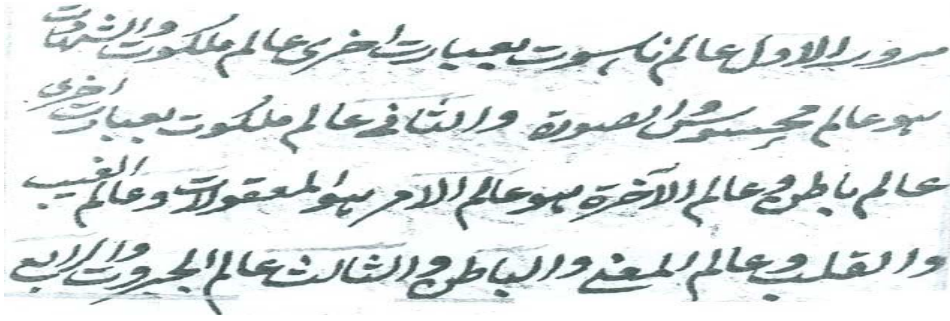 سرور الاول عالم ناسوت بعبارت اخرى عالم ملكوت والشهادت
هو عالم محسوس والصورة والثانى عالم ملكوت بعبارت اخرى
عالم باطن وعالم الآخرة هو عالم الامر هو المعقولات وعالم الغيب
والقلب وعالم المعنى والباطن والثالث عالم الجبروت والرابع